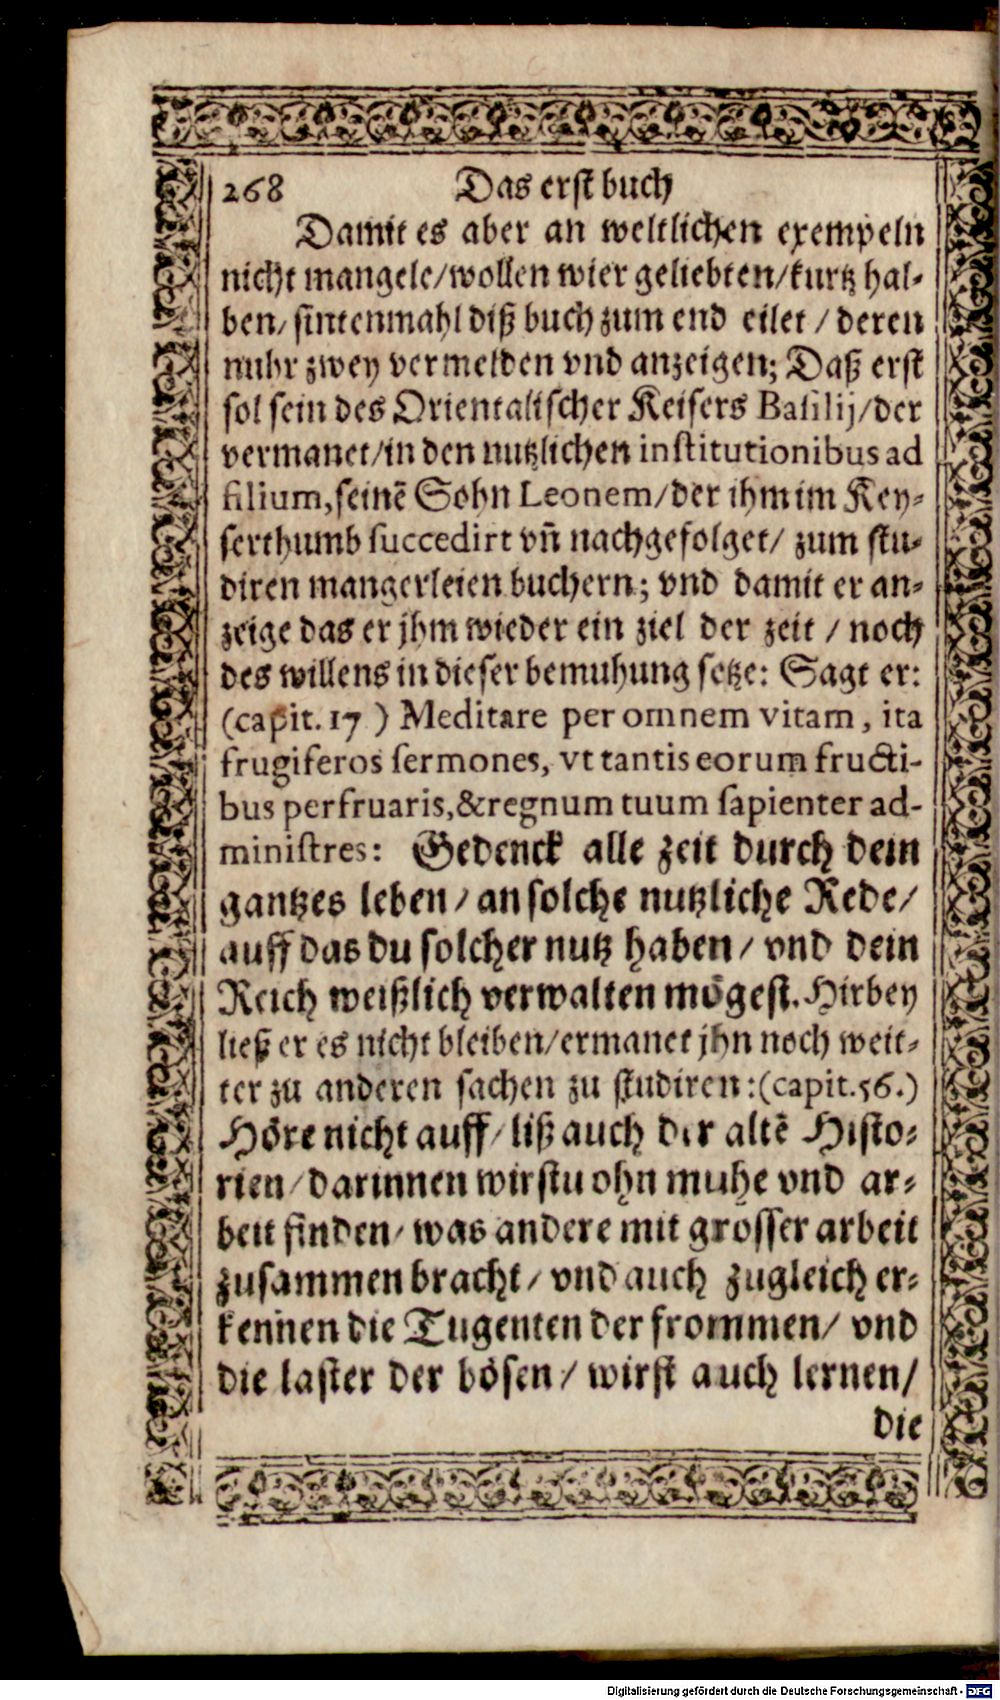 268 Das erst buch
Damit es aber an weltlichen exempeln
nicht mangele/wollen wier geliebten/kurtz hal-
ben/ sintenmahl diß buch zum end eilet / deren
nuhr zwey vermelden vnd anzeigen; Daß erst
sol sein des Orientalischer Keisers Basilij/der
vermanet/in den nutzlichen institutionibus ad
filium, seinē Sohn Leonem/der ihm im Key-
serthumb succedirt vn̄ nachgefolget/ zum stu-
diren mangerleien buchern; vnd damit er an-
zeige das er jhm wieder ein ziel der zeit / noch
des willens in dieser bemuhung setze: Sagt er:
(capit. 17 ) Meditare per omnem vitam, ita
frugiferos sermones, vt tantis eorum fructi-
bus perfruaris, &regnum tuum sapienter ad-
ministres: Gedenck alle zeit durch dein
gantzes leben/an solche nutzliche Rede/
auff das du solcher nutz haben/ vnd dein
Reich weißlich verwalten mögest. Hirbey
ließ er es nicht bleiben/ermanet jhn noch weit-
ter zu anderen sachen zu studiren: (capit. 56.)
Höre nicht auff/ liß auch der altē Histo-
rien/darinnen wirstu ohn muhe vnd ar-
beit finden/ was andere mit grosser arbeit
zusammen bracht/ vnd auch zugleich er-
kennen die Tugenten der frommen/ vnd
die laster der bösen/ wirst auch lernen/
die
Digitalisierung gefördert durch die Deutsche Forschungsgemeinschaft - DFG